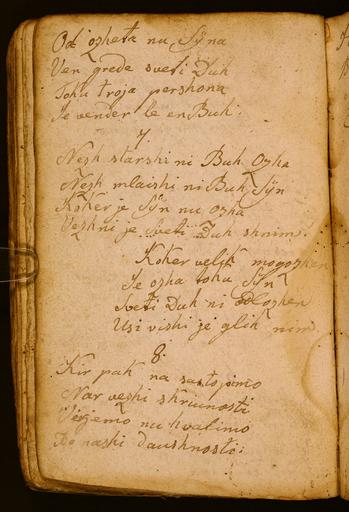 Od ozheta nu Sÿna
Ven grede sveti Duh
Toku troja pershona
Je vender le en Buh.
7.
Nezh starshi ni Buh Ozha
Nezh mlaishi ni Buh Sÿn
Koker je Sÿn nu Ozha
Vezhni je Sveti Duh shnim.
Koker velik mogozhen
Je ozha toku Sÿn
Sveti Duh ni
Usi vishi je glih nim
8.
Kir pak na sastopimo
Nar vezhi skriunosti
Verjemo nu hvalimo
Po nashi daushnosti.